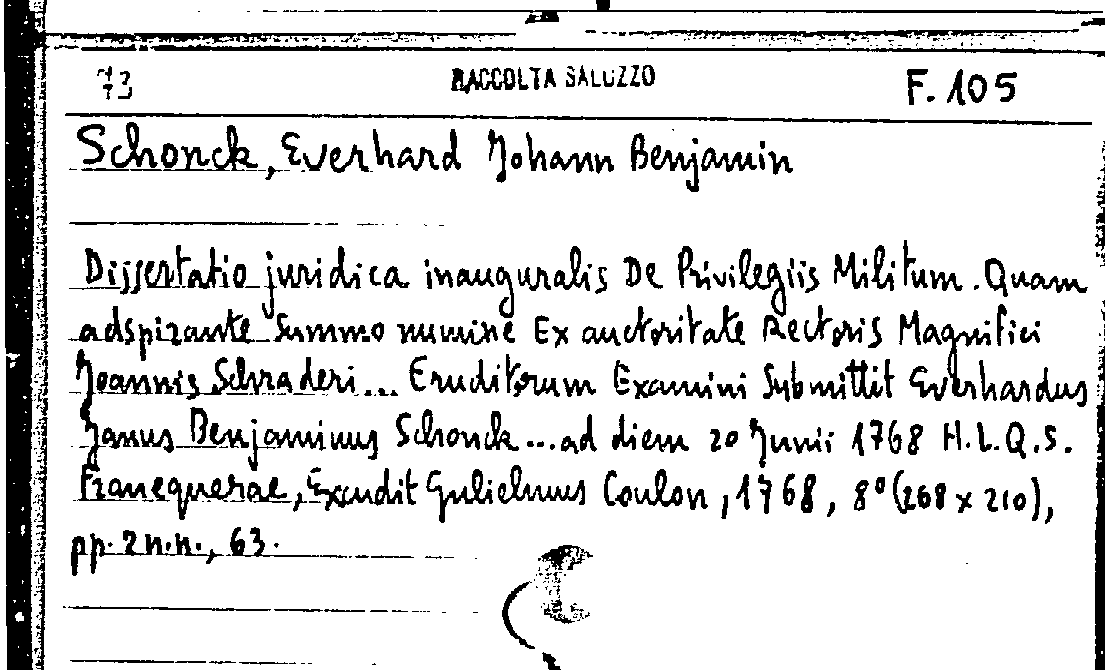 13
RACCOLTA SALUZZO
F. 105
Schonck, Everhard Johann Benjamin
Dissertatio juridica inauguralis De Privilegiis Militum. Quam
adspirante Summo numine Ex auctoritate Rectoris Magnifici
Joannis Schraderi... Eruditorum Examini Submittit Everhardus
Janus Benjaminus Schonck...ad diem 20 Junii 1768 H.L.Q.S.
Franequerae, Excudit Gulielmus Coulon, 1768, 8° (268 x 210),
pp. 2 n.n., 63.